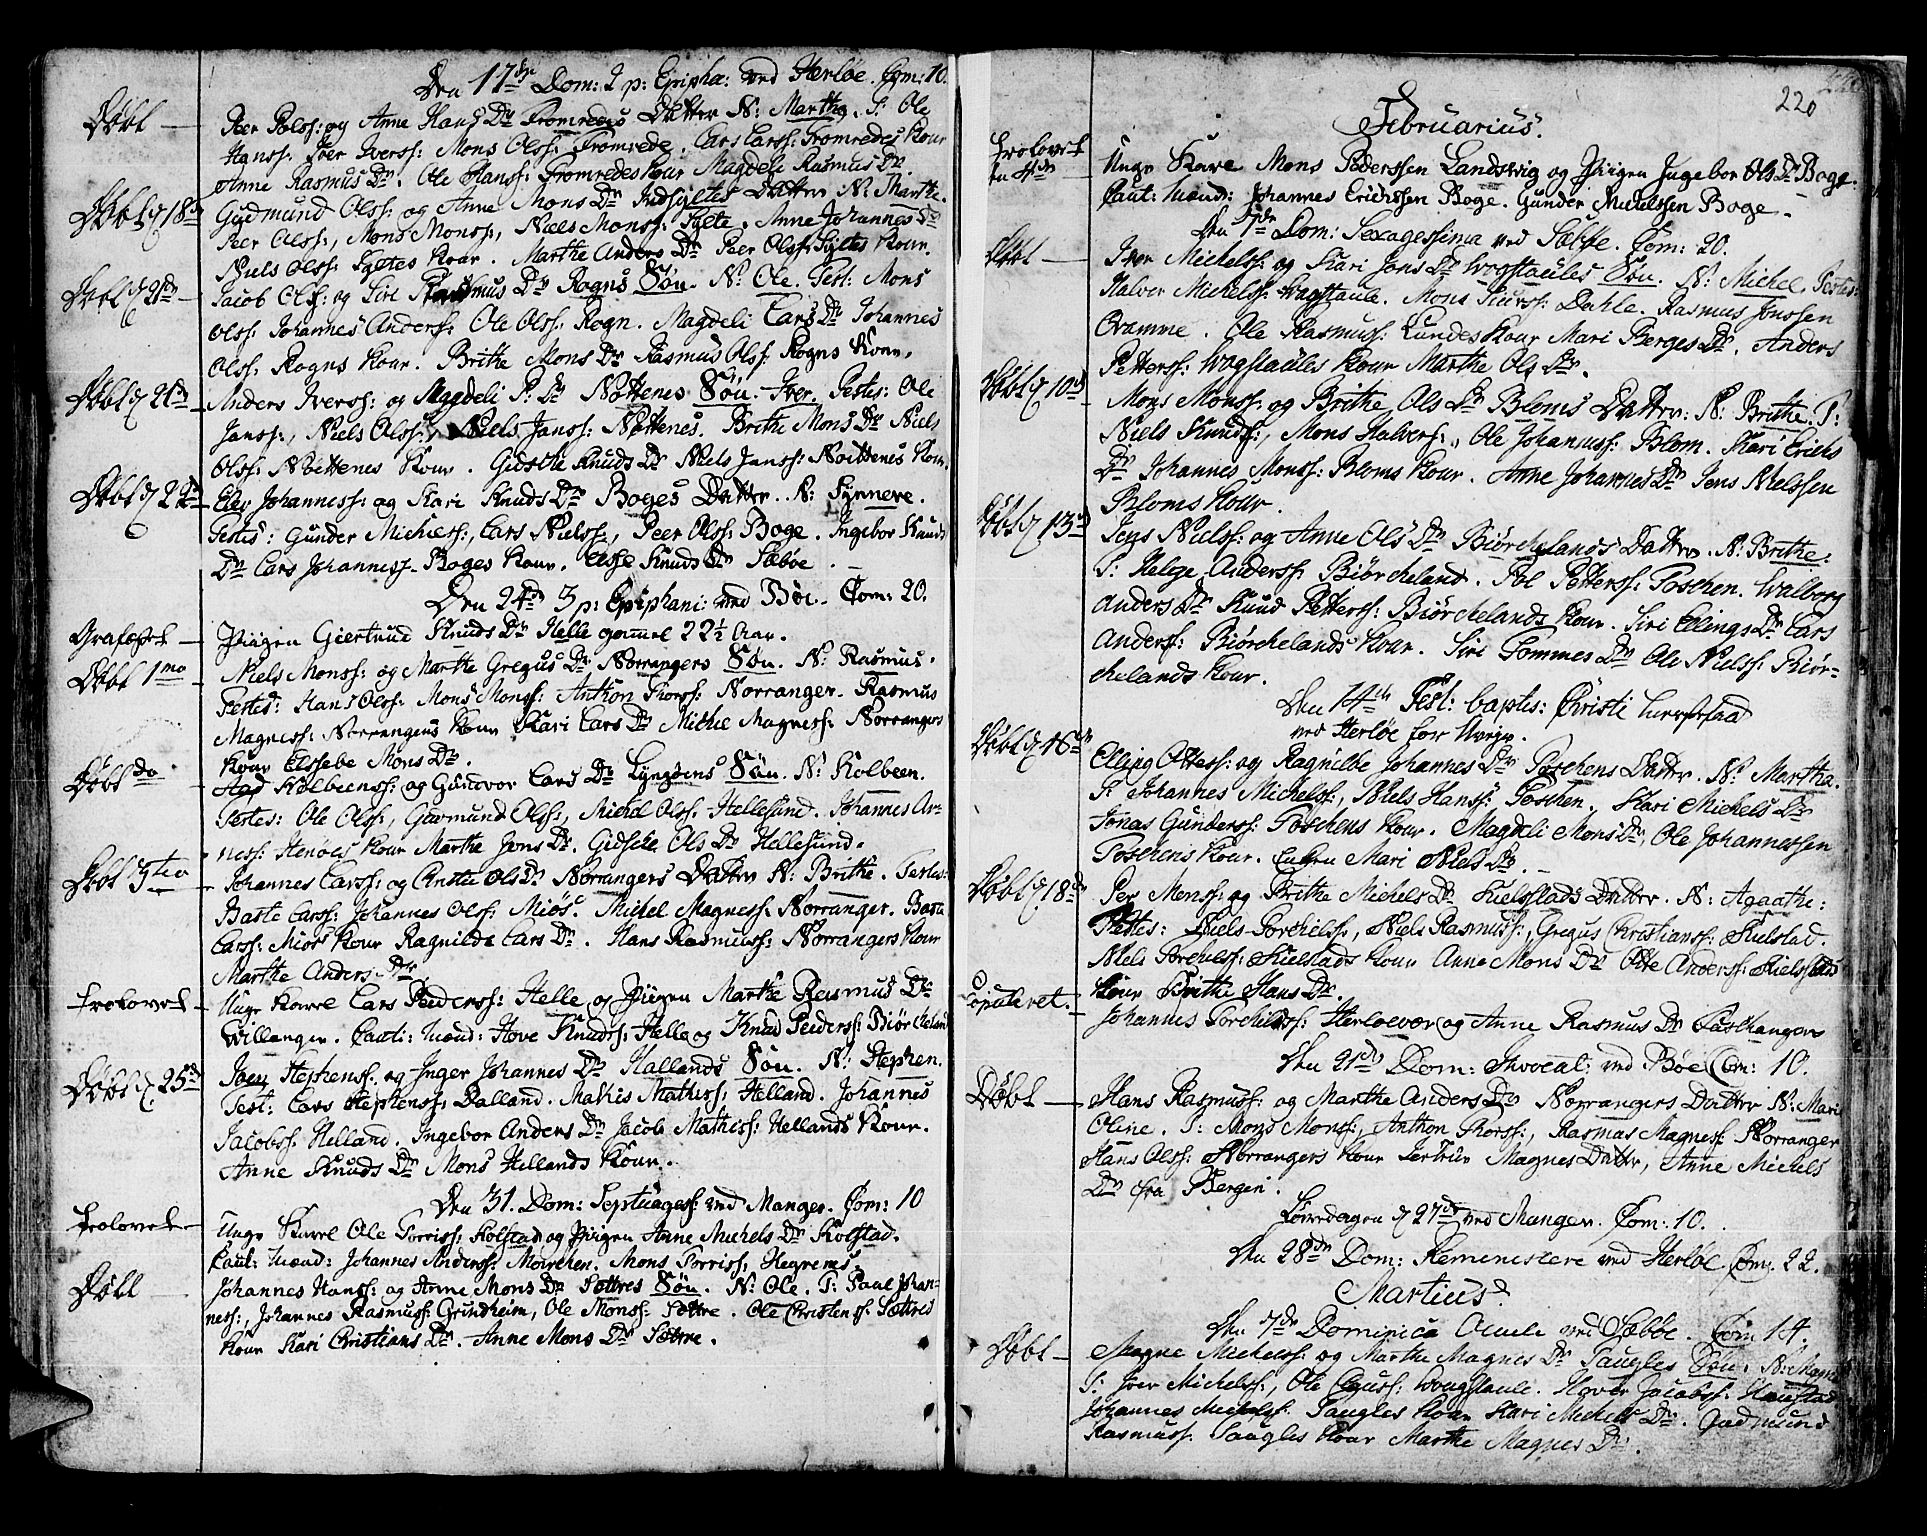 Den 17de Dom: 2 p: Epipha: ved Herløe. Com: 10.
Døbt — Peer Polss: og Anne Hans Dr Fromredes Datter N: Marthe. T: Ole
Hanss: Iver Iverss: Mons Olss: Fromrede. Lars Larss: Fromredes Kone
Anne Rasmus Dr. Ole Hanss: Fromredes Kone Magdeli Rasmus Dr.
Døbt d 18de Gudmund Olss: og Anne Mons Dr Indsyltes Datter N: Marthe.
Peer Olss:, Mons Monss:, Niels Monss: Sylte. Anne Johannes Dr
Niels Olss: Syltes Kone. Marthe Anders Dr Peer Olss: Syltes Kone.
Døbt d 21de Jacob Olss: og Siri Rasmus Dr Rogns Søn. N: Ole. Test: Mons
Olss: Johannes Anderss: Ole Olss: Rogn. Magdeli Lars Dr Johannes
Olss: Rogns Kone. Brithe Mons Dr Rasmus Olss: Rogns Kone.
Døbt d 21de Anders Iverss: og Magdeli P: Dr Nøttenes Søn. Iver. Testes: Ole
Janss:, Niels Olss:, Niels Janss: Nøttenes. Brithe Mons Dr Niels
Olss: Nøttenes Kone. Gidsche Knuds Dr Niels Janss: Nøttenes Kone.
Døbt d 22de Elev Johanness: og Kari Knuds Dr Boges Datter. N: Synneve.
Testes: Gunder Michelss:, Lars Nielss:, Peer Olss: Boge. Ingebor Knuds
Dr Lars Johanness: Boges Kone. Else Knuds Dr Sæbøe. —
Den 24de 3 p: Epiphani: ved Bøe. Com: 20.
Grafæstet — Piigen Giertrud Knuds Dr Helle gammel 22½ Aar.
Døbt 1mo Niels Monss: og Marthe Gregus Dr Norrangers Søn. N: Rasmus.
Testes: Hans Olss: Mons Monss: Anthon Thorss: Norranger. Rasmus
Magness: Norrangers Kone Kari Lars Dr Michel Magness: Norrangers
Kone Elssebe Mons Dr.
Døbt do Aad Kolbeenss: og Gundvor Lars Dr Lyngøens Søn. N: Kolbeen.
Testes: Ole Olss:, Garmund Olss:, Michel Olss: Hellesund. Johannes Ar-
ness: Stenøes Kone Marthe Jens Dr. Gidsche Ols Dr Hellesund.
Døbt 3tio Johannes Larss: og Anne Ols Dr Norrangers Datter N: Brithe. Testes:
Baste Larss: Johannes Olss: Miøs. Michel Magness: Norranger. Baste
Larss: Miøs Kone Ragnilde Lars Dr. Hans Rasmuss: Norrangers Kone
Marthe Anders Dr.
Trolovet — Unge Karl Lars Pedderss: Helle og Piigen Marthe Rasmus Dr
Willanger. Cauti: Mænd: Hove Knudss: Helle og Knud Peiderss: Biørcheland
Døbt d 25de Iven Stephenss: og Inger Johannes Dr Hallands Søn. N: Stephen.
Test: Lars Stephenss: Dalland. Mathis Mathiss: Helland. Johannes
Jacobss: Helland. Ingebor Anders Dr Jacob Mathiss: Hellands Kone.
Anne Knuds Dr Mons Hellands Kone.
Den 31. Dom: Septuagess: ved Manger. Com: 10
Trolovet — Unge Karl Ole Torriss: Kolstad og Piigen Anne Michels Dr Kolstad.
Caut: Mænd: Johannes Anderss: Moirchen. Mons Torriss: Hegrenes.
Døbt — Johannes Hanss: og Anne Mons Dr Sættres Søn. N: Ole. T: Paul Johan-
ness:, Johannes Rasmuss: Grindheim, Ole Monss: Sættre. Ole Christenss: Sættres
Kone Kari Christians Dr. Anne Mons Dr Sættre.
220
Februarius.
Trolovet
den 4de Unge Karl Mons Pederssen Landsvig og Piigen Ingebor Ols Dr Boge.
Caut: Mænd: Johannes Erichssen Boge. Gunder Michelssen Boge.
Den 7de Dom: Sexagessima ved Sæbøe. Com: 20.
Døbt — Iver Michelss: og Kari Jons Dr Wogstaules Søn. N: Michel. Testes:
Halver Michelss: Wogstaule. Mons Siurss: Dahle. Rasmus Jonssen
Qvamme. Ole Rasmuss: Lundes Kone Mari Berges Dr. Anders
Petterss: Wogstaules Kone Marthe Ols Dr.
Døbt d 10de Mons Monss: og Brithe Ols Dr Bloms Datter: N: Brithe. T:
Niels Knudss:, Mons Halverss:, Ole Johannss: Blom. Kari Erichs
Dr Johannes Monss: Bloms Kone. Anne Johannes Dr Jens Nielssen
Bloms Kone.
Døbt d 13de Jens Nielss: og Anne Ols Dr Biørchelands Datter. N: Brithe.
T: Helge Anderss: Biørcheland. Pol Petterss: Toschen. Walborg
Anders Dr Knud Petterss: Biørchelands Kone. Siri Ellings Dr Lars
Anderss: Biørchelands Kone. Siri Tommes Dr Ole Nielss: Biør-
chelands Kone.
Den 14de Fest: baptis: Christi
ved Herløe for
Døbt d 16de Elling Ottess: og Ragnilde Johannes Dr Toschens Datter. N: Martha.
T: Johannes Michelss:, Niels Hanss: Toschen. Kari Michels Dr
Jonas Gunderss: Toschens Kone. Magdeli Mons Dr, Ole Johannessen
Toschens Kone. Enken Mari Niels Dr. —
Døbt d 18de Per Monss: og Brithe Michels Dr Kielstads Datter. N: Agaathe:
Testes: Niels Torchelss:, Niels Rasmuss:, Gregus Christianss: Kielstad.
Niels Torchelss: Kielstads Kone Anne Mons Dr Otte Anderss: Kielstads
Kone Brithe Hans Dr.
Copuleret. Johannes Torchildss: Herløevær og Anne Rasmus Dr Toschangers
Den 21de Dom: Invocat: ved Bøe Com: 10.
Døbt — Hans Rasmuss: og Marthe Anders Dr Norrangers Datter N: Mari
Oline. T: Mons Monss:, Anthon Thorss:, Rasmus Magness: Norranger
Hans Olss: Norrangers Kone Magnes Datter, Anne Michels
Dr fra Bergen.
Løverdagen d 27de ved Manger. Com: 10.
Den 28de Dom: Remeniscere ved Herløe. Com: 22.
Martius.
Den 7de Dominica Oculi ved Sæbøe. Com 14.
Døbt — Magne Michelss: og Marthe Magnes Dr Taugles Søn. N: Magne
T: Iver Michelss:, Ole Clauss: Wougstaule. Hover Jacobss: Haugstad
Johannes Michelss: Taugles Kone Kari Michels Dr. Gudmund
Rasmuss: Taugles Kone Marthe Magnes Dr.